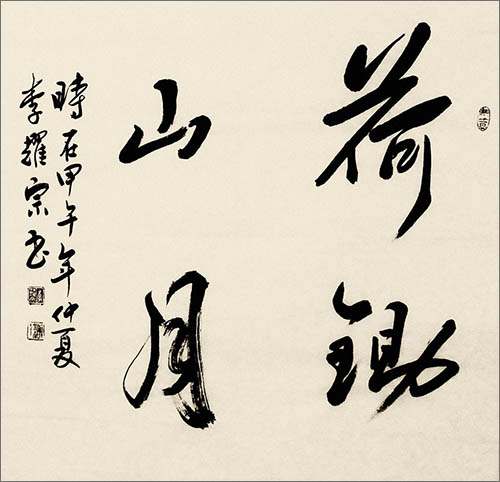 荷鋤
山月
時在甲午年仲夏
李耀宗书